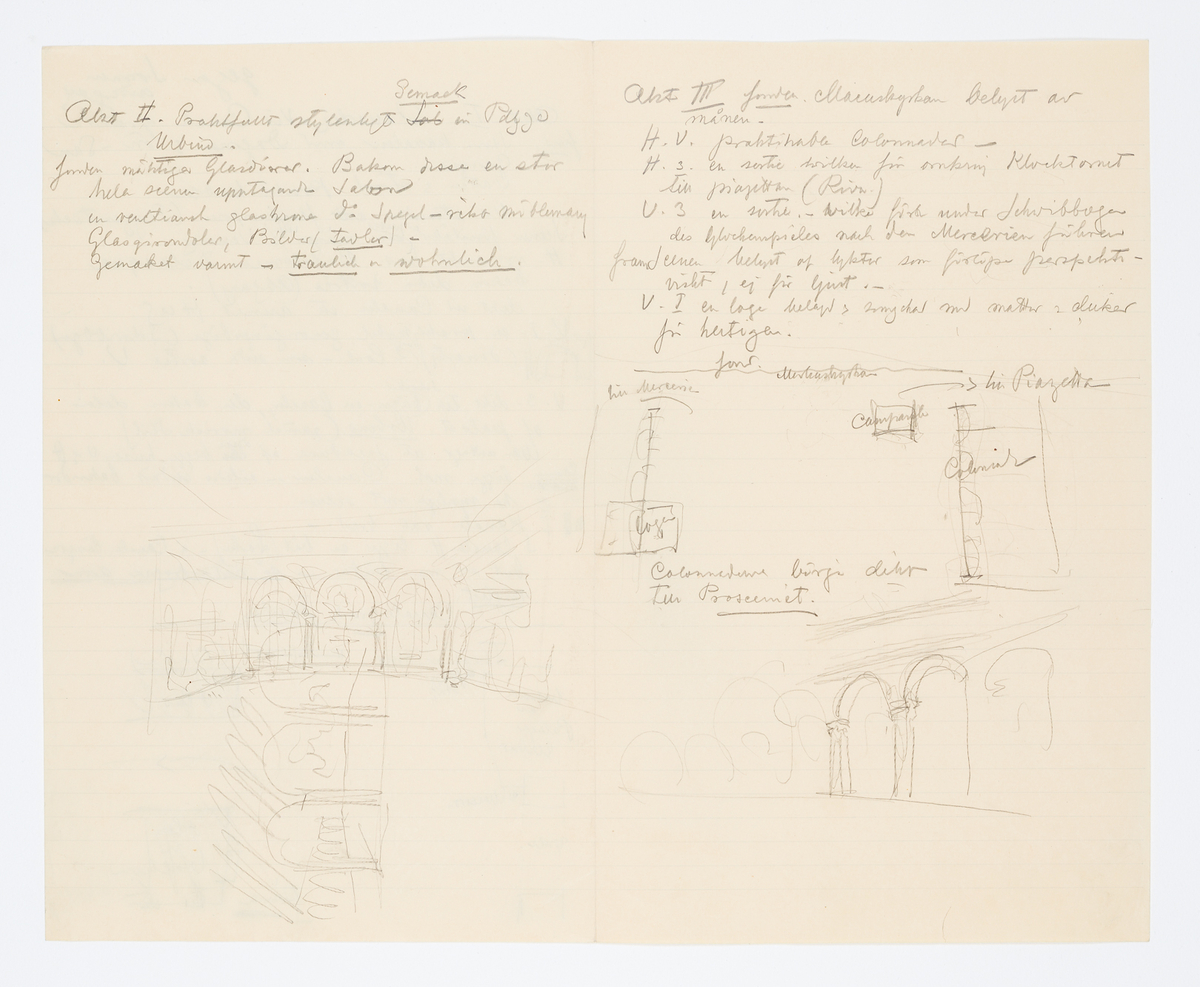 Gemack
Akt II. Praktfullt stylenligt Sal in Palazzo
Urbino.
fonden mäktiga Glasdörrar. Bakom dessa en stor
hela scenen upptagande Salon
en venetiansk glaskrona Spegel – rika möblemang
Glasgirondoler, Bilder (Tavlor) –
Gemacket varmt – traulich o wohnlich.
Akt III fonden. Marcuskyrkan belyst av
månen –
H. V. praktikabla Colonnader –
H. 3. en sortie wilken för omkring Klocktornet
till piazettan (Riva.)
V. 3 en sortie. – wilken förb under Schwibbogen
des Glockenspieles nach den Mercerien führen
scenen belyst af lyktor som förlöpa perspekti-
viskt, ej för ljust. –
V. I en loge belagd med mattor o dukar
för hertigen.
fond.
Markuskyrkan
till Mercerie
till Piazetta
Campanile
Colonnade
Loge
Colonnaderne börja dikt
till Prosceniet.